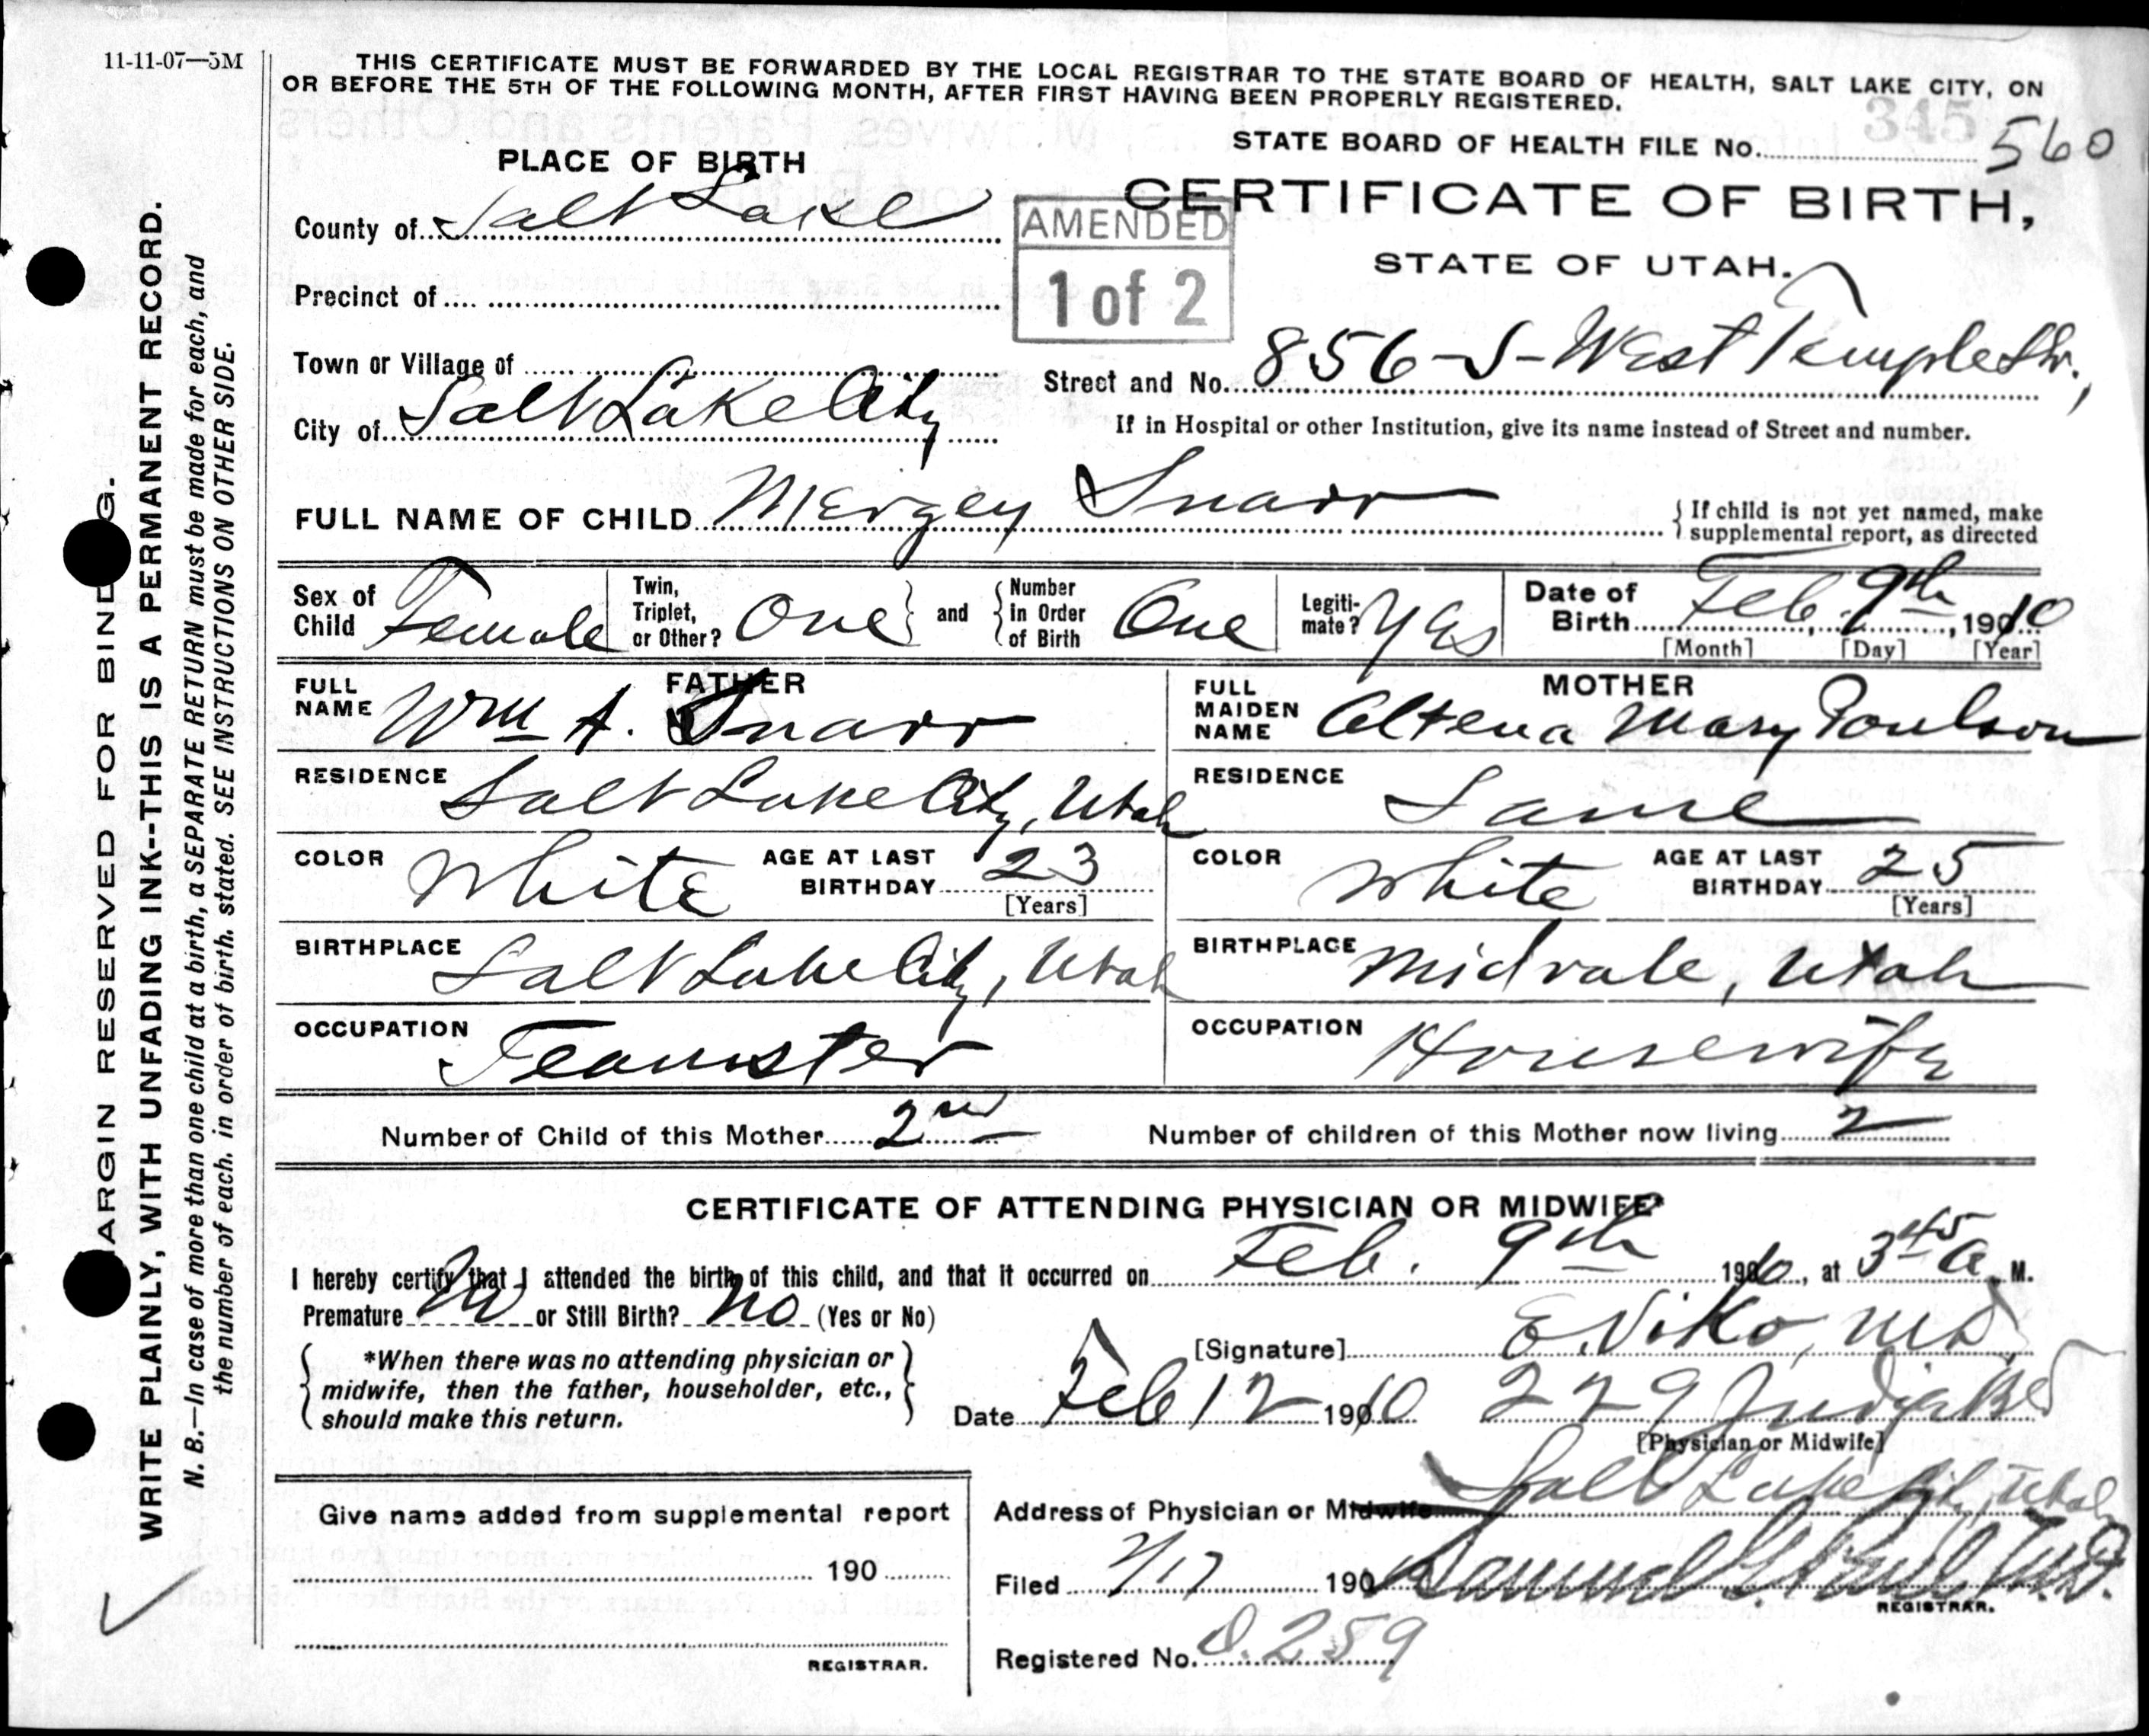 11-11-07—5M
THIS CERTIFICATE MUST BE FORWARDED BY THE LOCAL REGISTRAR TO THE STATE BOARD OF HEALTH, SALT LAKE CITY, ON
OR BEFORE THE 5TH OF THE FOLLOWING MONTH, AFTER FIRST HAVING BEEN PROPERLY REGISTERED.
345
STATE BOARD OF HEALTH FILE No. 560
PLACE OF BIRTH
CERTIFICATE OF BIRTH,
STATE OF UTAH.
AMENDED
1 of 2
County of Salt Lake
Precinct of
Town or Village of
City of Salt Lake City
Street and No. 856-S-West Temple Str.,
If in Hospital or other Institution, give its name instead of Street and number.
FULL NAME OF CHILD Merzey Snarr
If child is not yet named, make
supplemental report, as directed
Sex of Child Female
Twin, Triplet, or Other? One
and
Number in Order of Birth One
Legiti-mate? Yes
Date of Birth Feb. 9th, 1910
[Month] [Day] [Year]
FATHER
FULL NAME Wm A. Snarr
RESIDENCE Salt Lake City, Utah
COLOR White AGE AT LAST BIRTHDAY 23
[Years]
BIRTHPLACE Salt Lake City, Utah
OCCUPATION Teamster
MOTHER
FULL MAIDEN NAME Altena Mary Poulson
RESIDENCE Same
COLOR White AGE AT LAST BIRTHDAY 25
[Years]
BIRTHPLACE Midvale, Utah
OCCUPATION Housewife
Number of Child of this Mother 2nd
Number of children of this Mother now living 2
CERTIFICATE OF ATTENDING PHYSICIAN OR MIDWIFE*
I hereby certify that I attended the birth of this child, and that it occurred on Feb. 9th 1910, at 3 45 a. M.
Premature No or Still Birth? No (Yes or No)
*When there was no attending physician or
midwife, then the father, householder, etc.,
should make this return.
[Signature] E. Viko, M.D.
Date Feb 12 1910 229 Judge Bld
[Physician or Midwife]
Give name added from supplemental report
190
REGISTRAR.
Address of Physician or Midwife Salt Lake City, Utah
Filed 2/17 190 Samuel G. Paul M.D.
REGISTRAR.
Registered No. 259
MARGIN RESERVED FOR BINDING.
WRITE PLAINLY, WITH UNFADING INK--THIS IS A PERMANENT RECORD.
N. B.—In case of more than one child at a birth, a SEPARATE RETURN must be made for each, and
the number of each. in order of birth. stated. SEE INSTRUCTIONS ON OTHER SIDE.